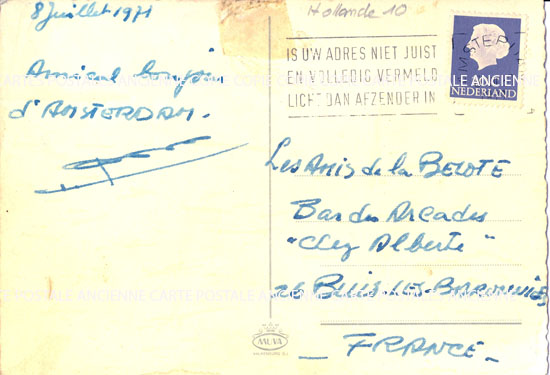 8 Juillet 1971
Amical bonjour
d'AMSTERDAM.
Hollande 10
IS UW ADRES NIET JUIST
EN VOLLEDIG VERMELD
LICHT DAN AFZENDER IN
NEDERLAND
Les Amis de la BELOTE
Bar des Arcades
"Chez Alberte"
26 BUIS-LES-BARONNIES
_ FRANCE _
CARTE POSTALE ANCIENNE CARTE POSTALE ANCIENNE
MUVA